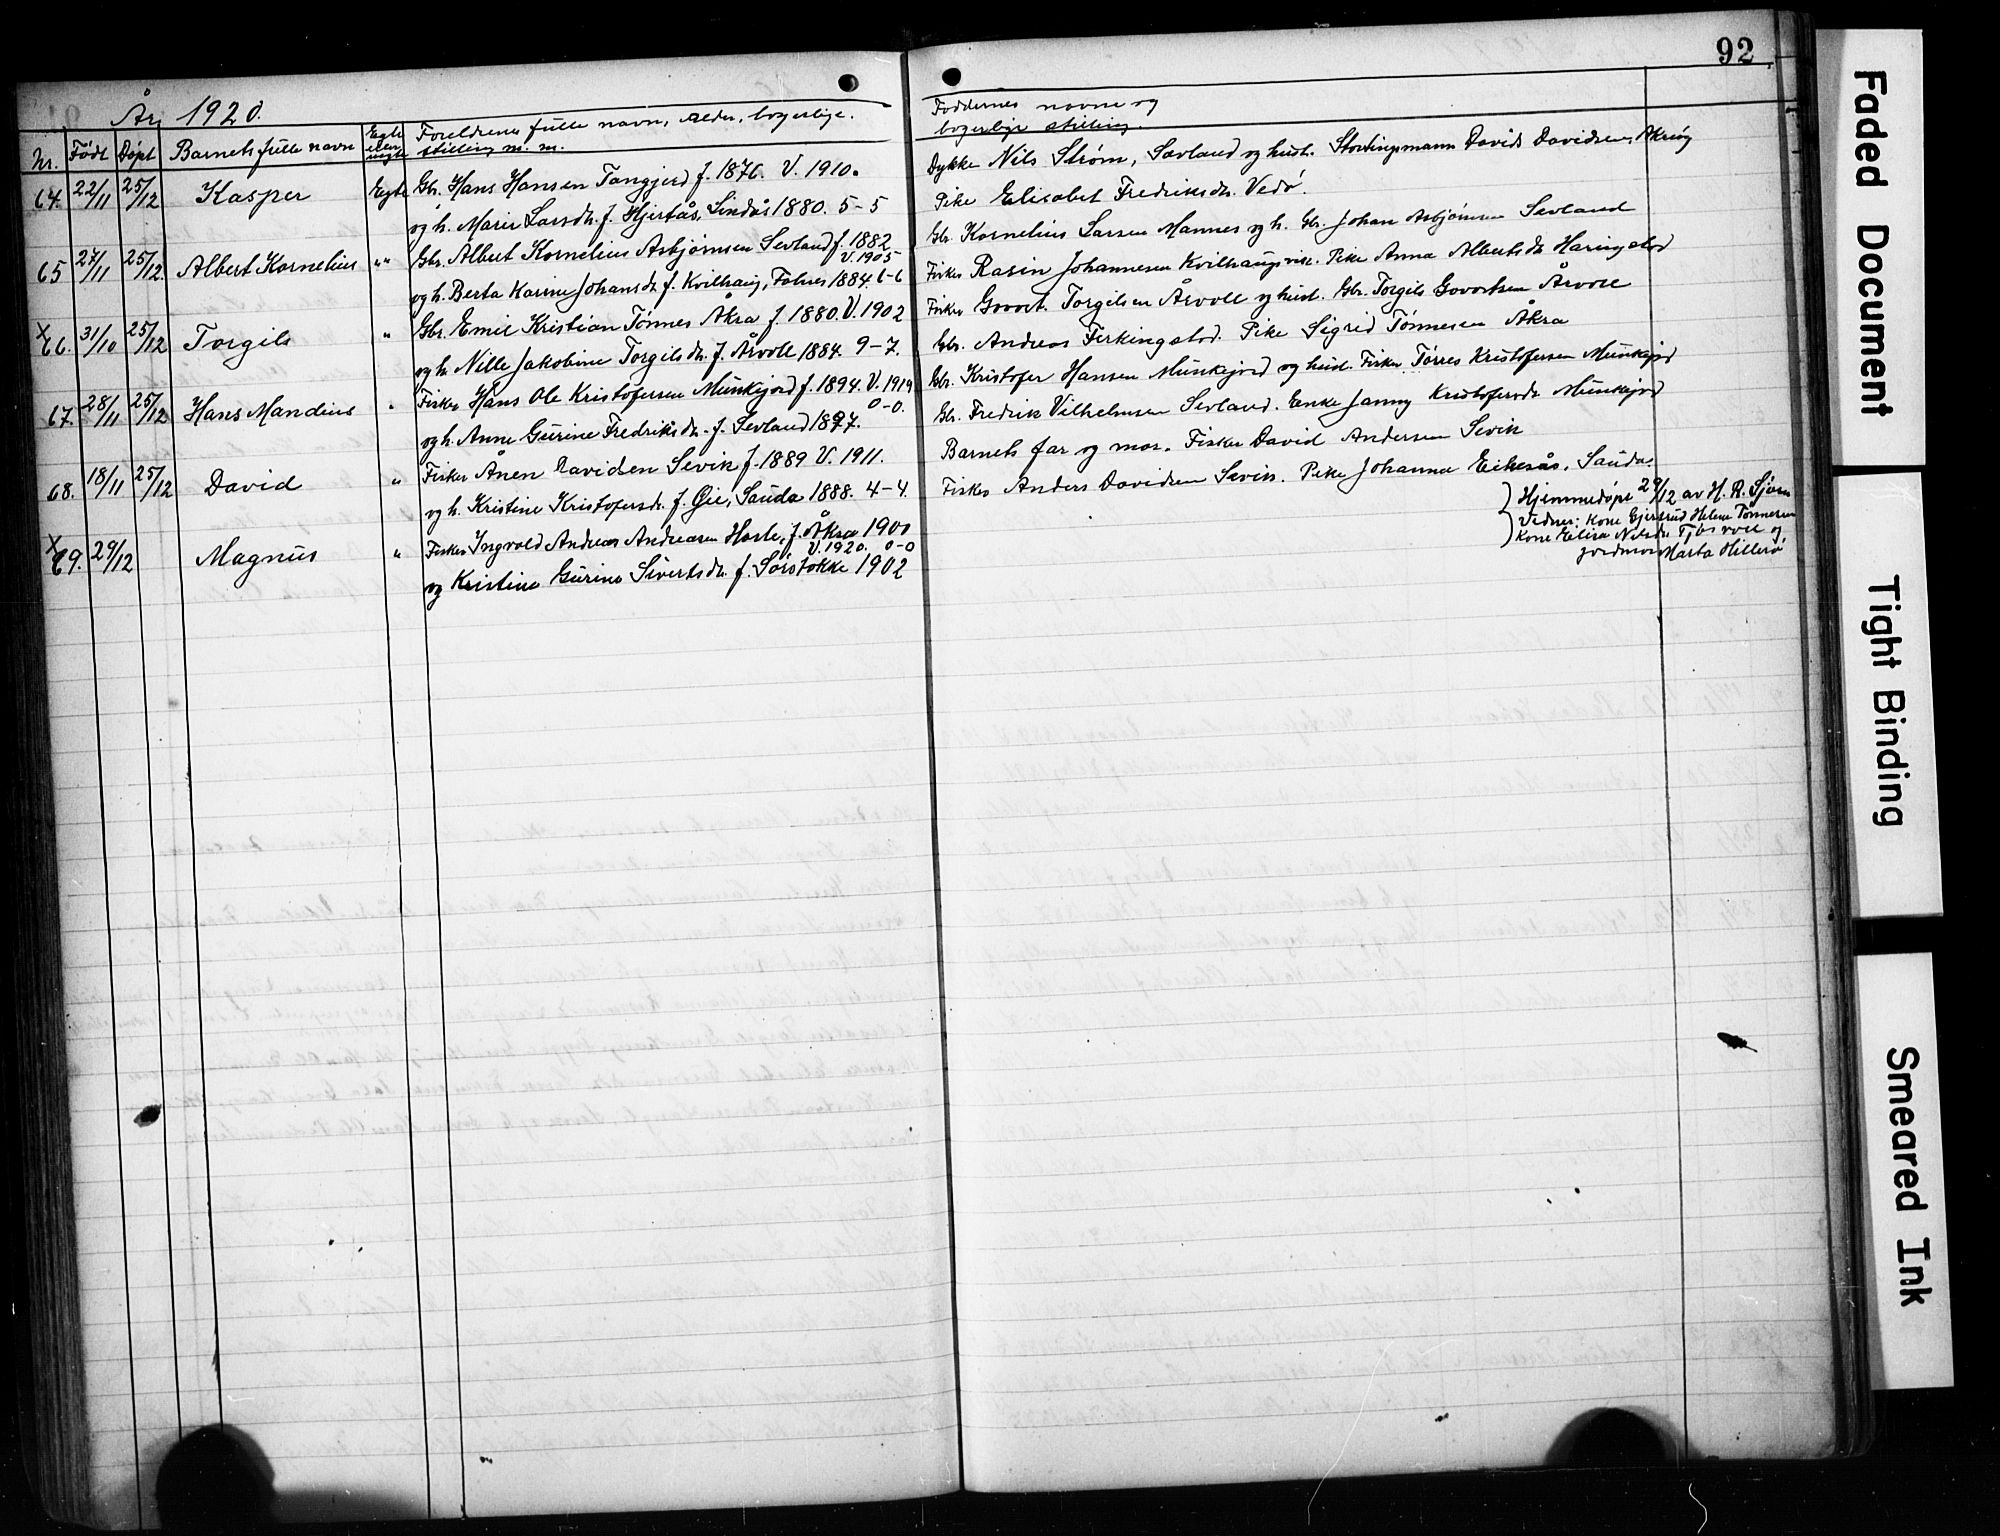 92
År 1920.
Nr. Født Døpt Barnets fulle navn Egte eller uegte Foreldrenes fulle navn, alder, borgerlige stilling m. m.
Faddernes navne og borgerlige stilling.
64. 22/11 25/12 Kasper Egte Gbr. Hans Hansen Tangjerd f. 1876. V. 1910.
og h. Marie Larsdtr. f. Hjertås, Lindås 1880. 5-5
65 27/11 25/12. Albert Kornelius " " Gbr. Albert Kornelius Asbjørnsen Sevland f. 1882 V. 1905
og h. Berta Karine Johansdtr f. Kvilhaug, Falnes 1884. 6-6
x 66. 31/10 25/12 Torgils " Gbr. Emil Kristian Tønnes Åkra f. 1880. V. 1902
og h. Nille Jakobine Torgilsdtr. f. Årvoll 1884. 9-7.
67. 28/11 25/12 Hans Mandius " Fisker Hans Ole Kristofersen Munkejord f. 1894. V. 1919 0-0.
og h. Anne Gurine Fredriksdtr. f. Sevland 1897.
68. 18/11 25/12 David " Fisker Ånen Davidsen Sevik f. 1889 V. 1911.
og h. Kristine Kristofersdtr. f. Øie, Sauda 1888. 4-4.
x 69. 29/12 Magnus " Fisker Ingvald Andreas Andreasen Hasle, f. Åkra 1900 V. 1920. 0-0
og Kristine Gurine Sivertsdtr. f. Sørstokke 1902
Dykke Nils Strøm, Sævland og hust. Stortingsmann Davids Davidsen, Akrëog
Pike Elisabet Fredriksdtr. Vedø.
Gbr. Kornelius Larsen Mannes og h. Gbr. Johan Asbjørnsen Sevland
Fisker Rasin Johannesen Kvilhaugsvik. Pike Anna Albertsdtr Haringstad
Fisker Govert Torgilsen Årvoll og hust. Gbr. Torgils Govertsen Årvoll
Gbr. Andreas Ferkingstad. Pike Sigrid Tønnesen Åkra
Gbr. Kristofer Hansen Munkejord og hust. Fisker Tørres Kristofersen Munkejord
Gbr. Fredrik Vilhelmsen Sevland. Enke Janny Kristofersdtr Munkejord
Barnets far og mor. Fisker David Andersen Sevik
Fisker Anders Davidsen Sevik. Pike Johanna Eikesås, Sauda.
Hjemmedøpt 29/12 av H. R. Sjøen
Vidner: Kone Gjertrud Helene Tønnesen
Kone Elisa Nilsdtr Tjøsvoll og
jordmor Marta Hillesø
Faded Document
Tight Binding
Smeared Ink